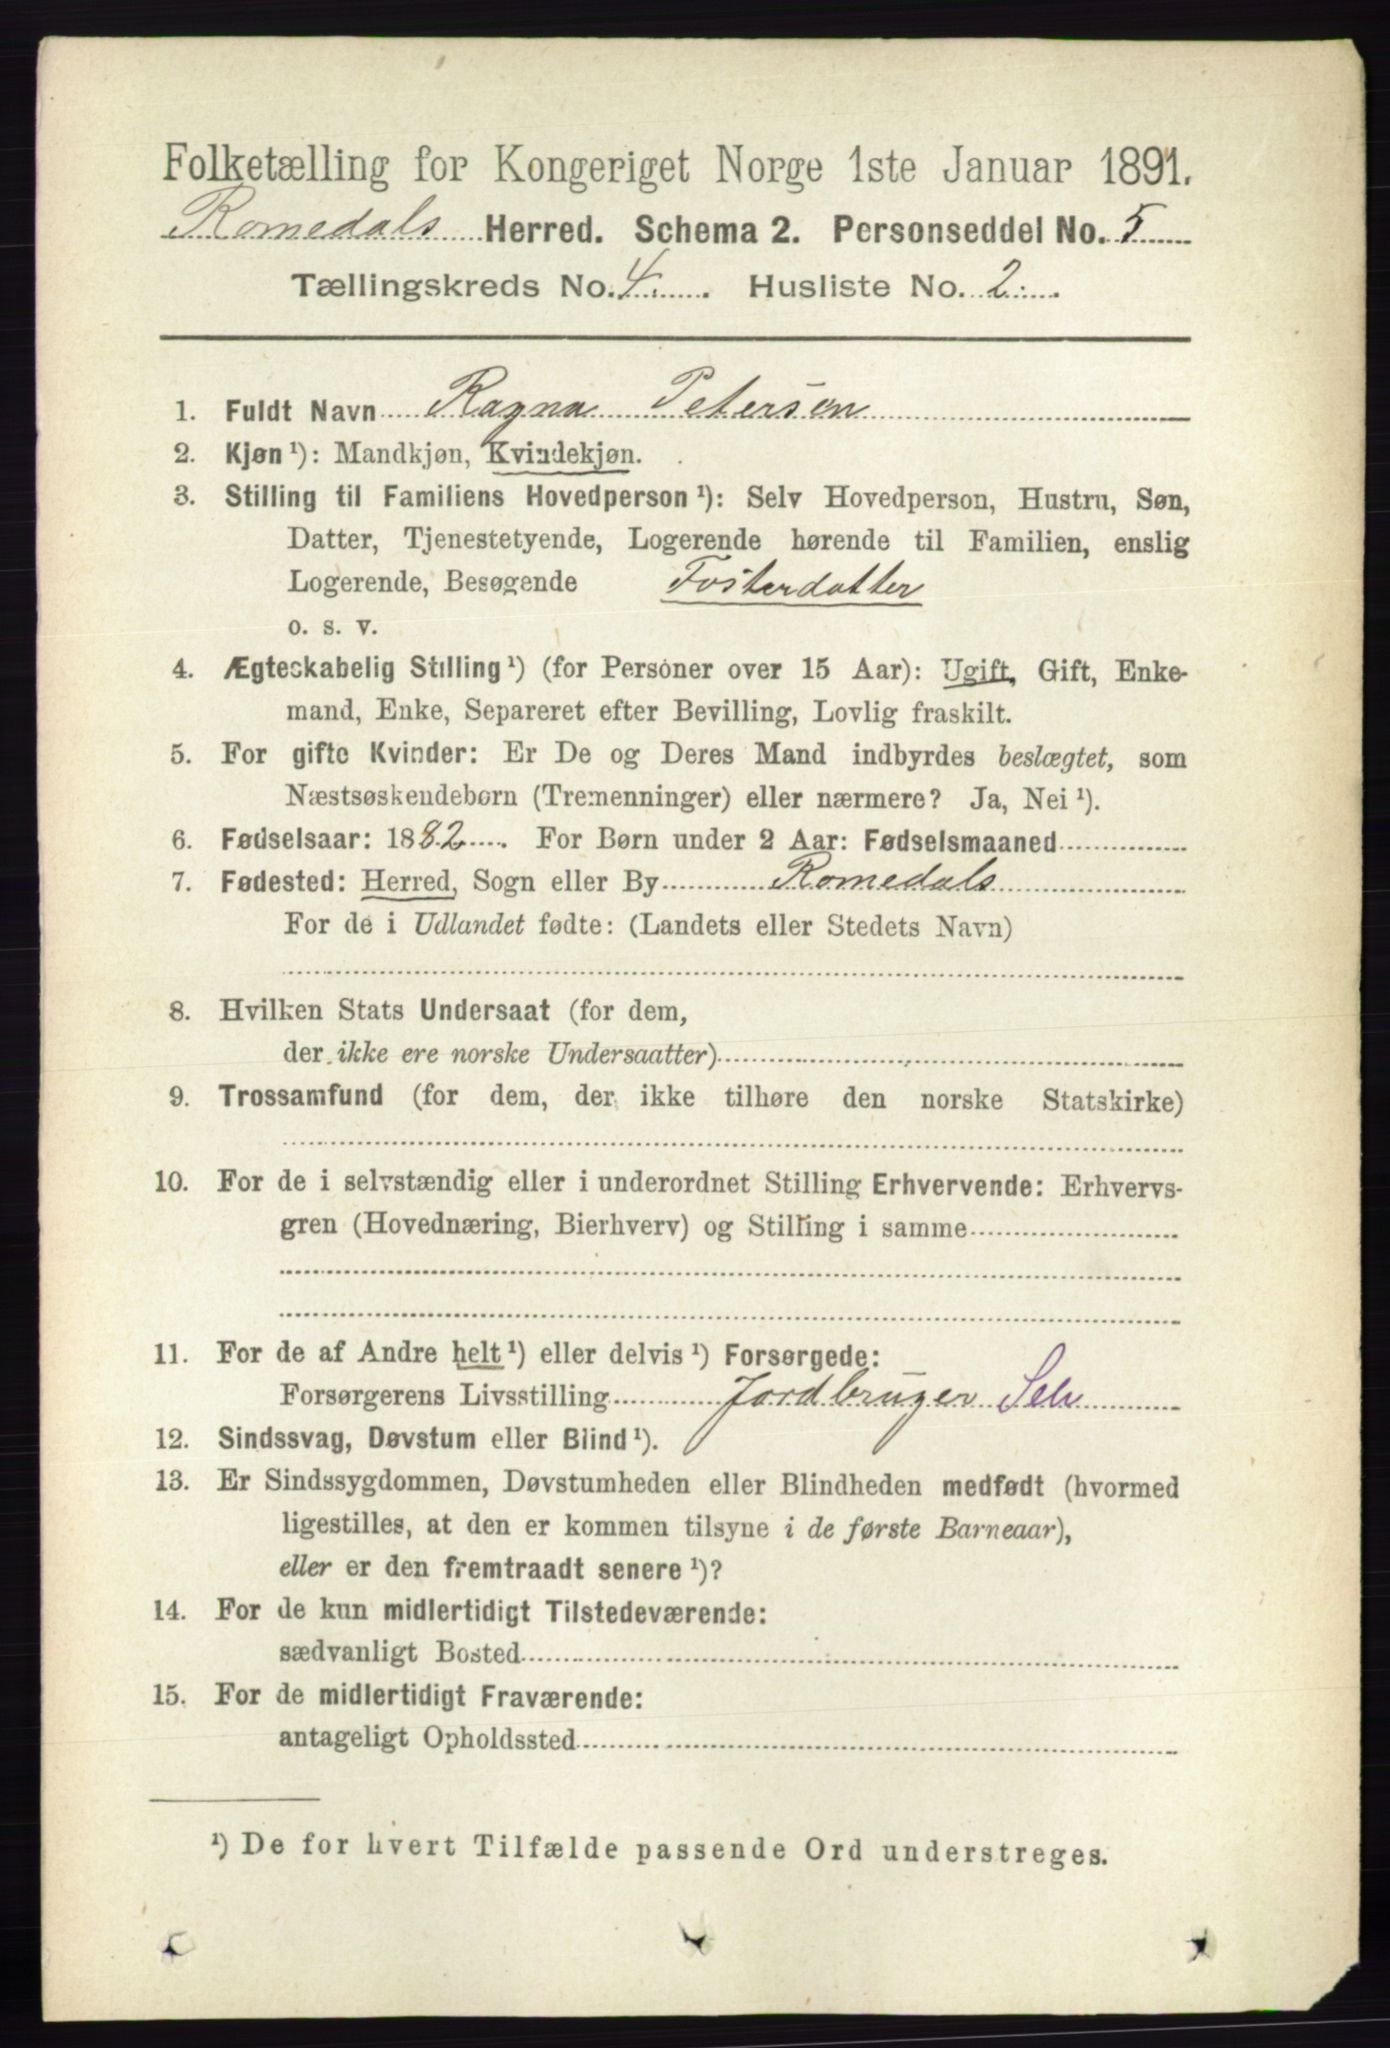 Folketælling for Kongeriget Norge 1ste Januar 1891.
Romedals Herred. Schema 2. Personseddel No. 5
Tællingskreds No. 4. Husliste No. 2.
1. Fuldt Navn Ragna Petersen
2. Kjøn ¹): Mandkjøn, Kvindekjøn.
3. Stilling til Familiens Hovedperson ¹): Selv Hovedperson, Hustru, Søn,
Datter, Tjenestetyende, Logerende hørende til Familien, enslig
Logerende, Besøgende Fosterdatter
o. s. v.
4. Ægteskabelig Stilling ¹) (for Personer over 15 Aar): Ugift, Gift, Enke-
mand, Enke, Separeret efter Bevilling, Lovlig fraskilt.
5. For gifte Kvinder: Er De og Deres Mand indbyrdes beslægtet, som
Næstsøskendebørn (Tremenninger) eller nærmere? Ja, Nei ¹).
6. Fødselsaar: 1882. For Børn under 2 Aar: Fødselsmaaned
7. Fødested: Herred, Sogn eller By Romedals
For de i Udlandet fødte: (Landets eller Stedets Navn)
8. Hvilken Stats Undersaat (for dem,
der ikke ere norske Undersaatter)
9. Trossamfund (for dem, der ikke tilhøre den norske Statskirke)
10. For de i selvstændig eller i underordnet Stilling Erhvervende: Erhvervs-
gren (Hovednæring, Bierhverv) og Stilling i samme
11. For de af Andre helt ¹) eller delvis ¹) Forsørgede:
Forsørgerens Livsstilling Jordbruger Selv
12. Sindssvag, Døvstum eller Blind ¹).
13. Er Sindssygdommen, Døvstumheden eller Blindheden medfødt (hvormed
ligestilles, at den er kommen tilsyne i de første Barneaar),
eller er den fremtraadt senere ¹)?
14. For de kun midlertidigt Tilstedeværende:
sædvanligt Bosted
15. For de midlertidigt Fraværende:
antageligt Opholdssted
¹) De for hvert Tilfælde passende Ord understreges.